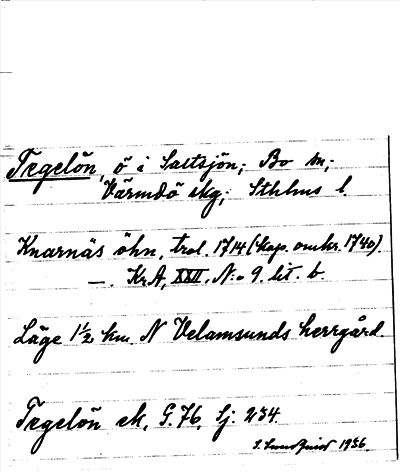 Tegelön, ö i Saltsjön; Bo sn;
Värmdö skg; Sthlms l.
Knarnäs öhn, trol. 1714 (kop. omkr. 1740).
—. KrA, XXII, N:o 9. lit. b.
Läge 1½ km. N Velamsunds herrgård.
Tegelön ek, G. 76, Sj: 234.
1936.